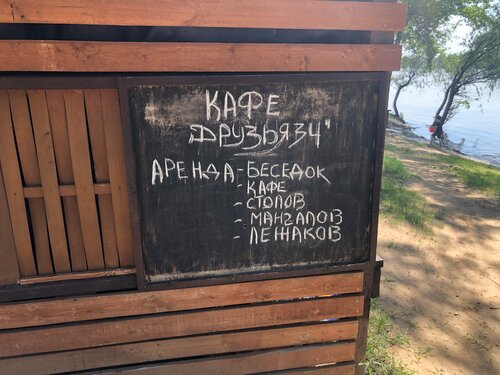 КАФЕ
ДРУЗЬЯЗЧ"
АРЕНДА - БЕСЕДОК
- КАФЕ
- СТОЛОВ
- МАНГАЛОВ
- ЛЕЖАКОВ